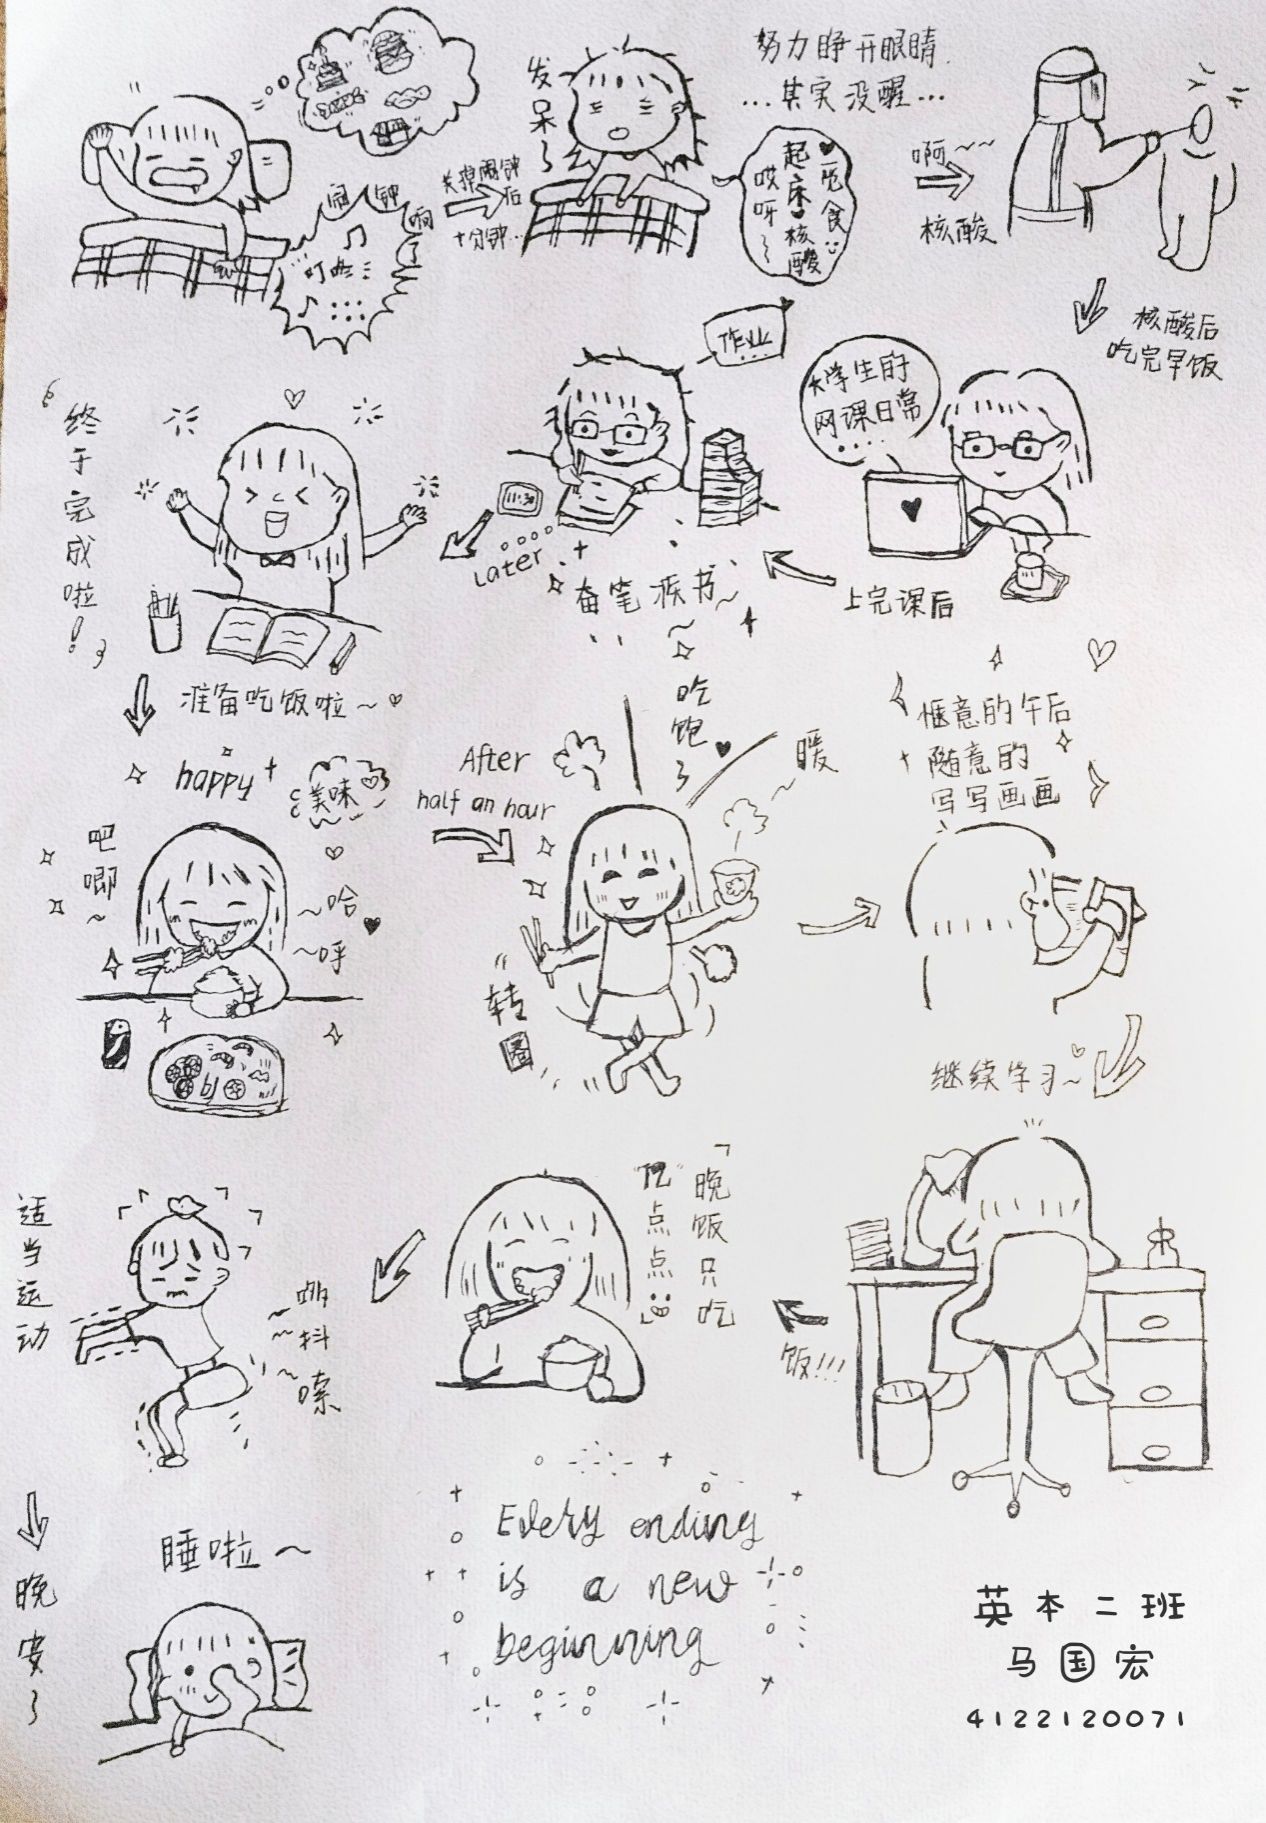 闹钟响了
叮咚
关掉闹钟后
十分钟...
发呆了
努力睁开眼睛
...其实没醒...
起床核酸
哎呀~
觅食
啊~~
核酸
核酸后
吃完早饭
大学生的
网课日常
....
上完课后
作业
...
奋笔疾书~
11:30
Later
终于完成啦!
准备吃饭啦~
happy
美味
吧唧~
~哈
~呼
After
half an hour
~吃饱了
暖
转圈
惬意的午后
随意的
写写画画
继续学习~
饭!!!
「晚饭只吃
"亿"点点」
适当运动
~哆
~抖
~嗦
晚安~
睡啦~
Every ending
is a new
beginning
英本二班
马国宏
4122120071